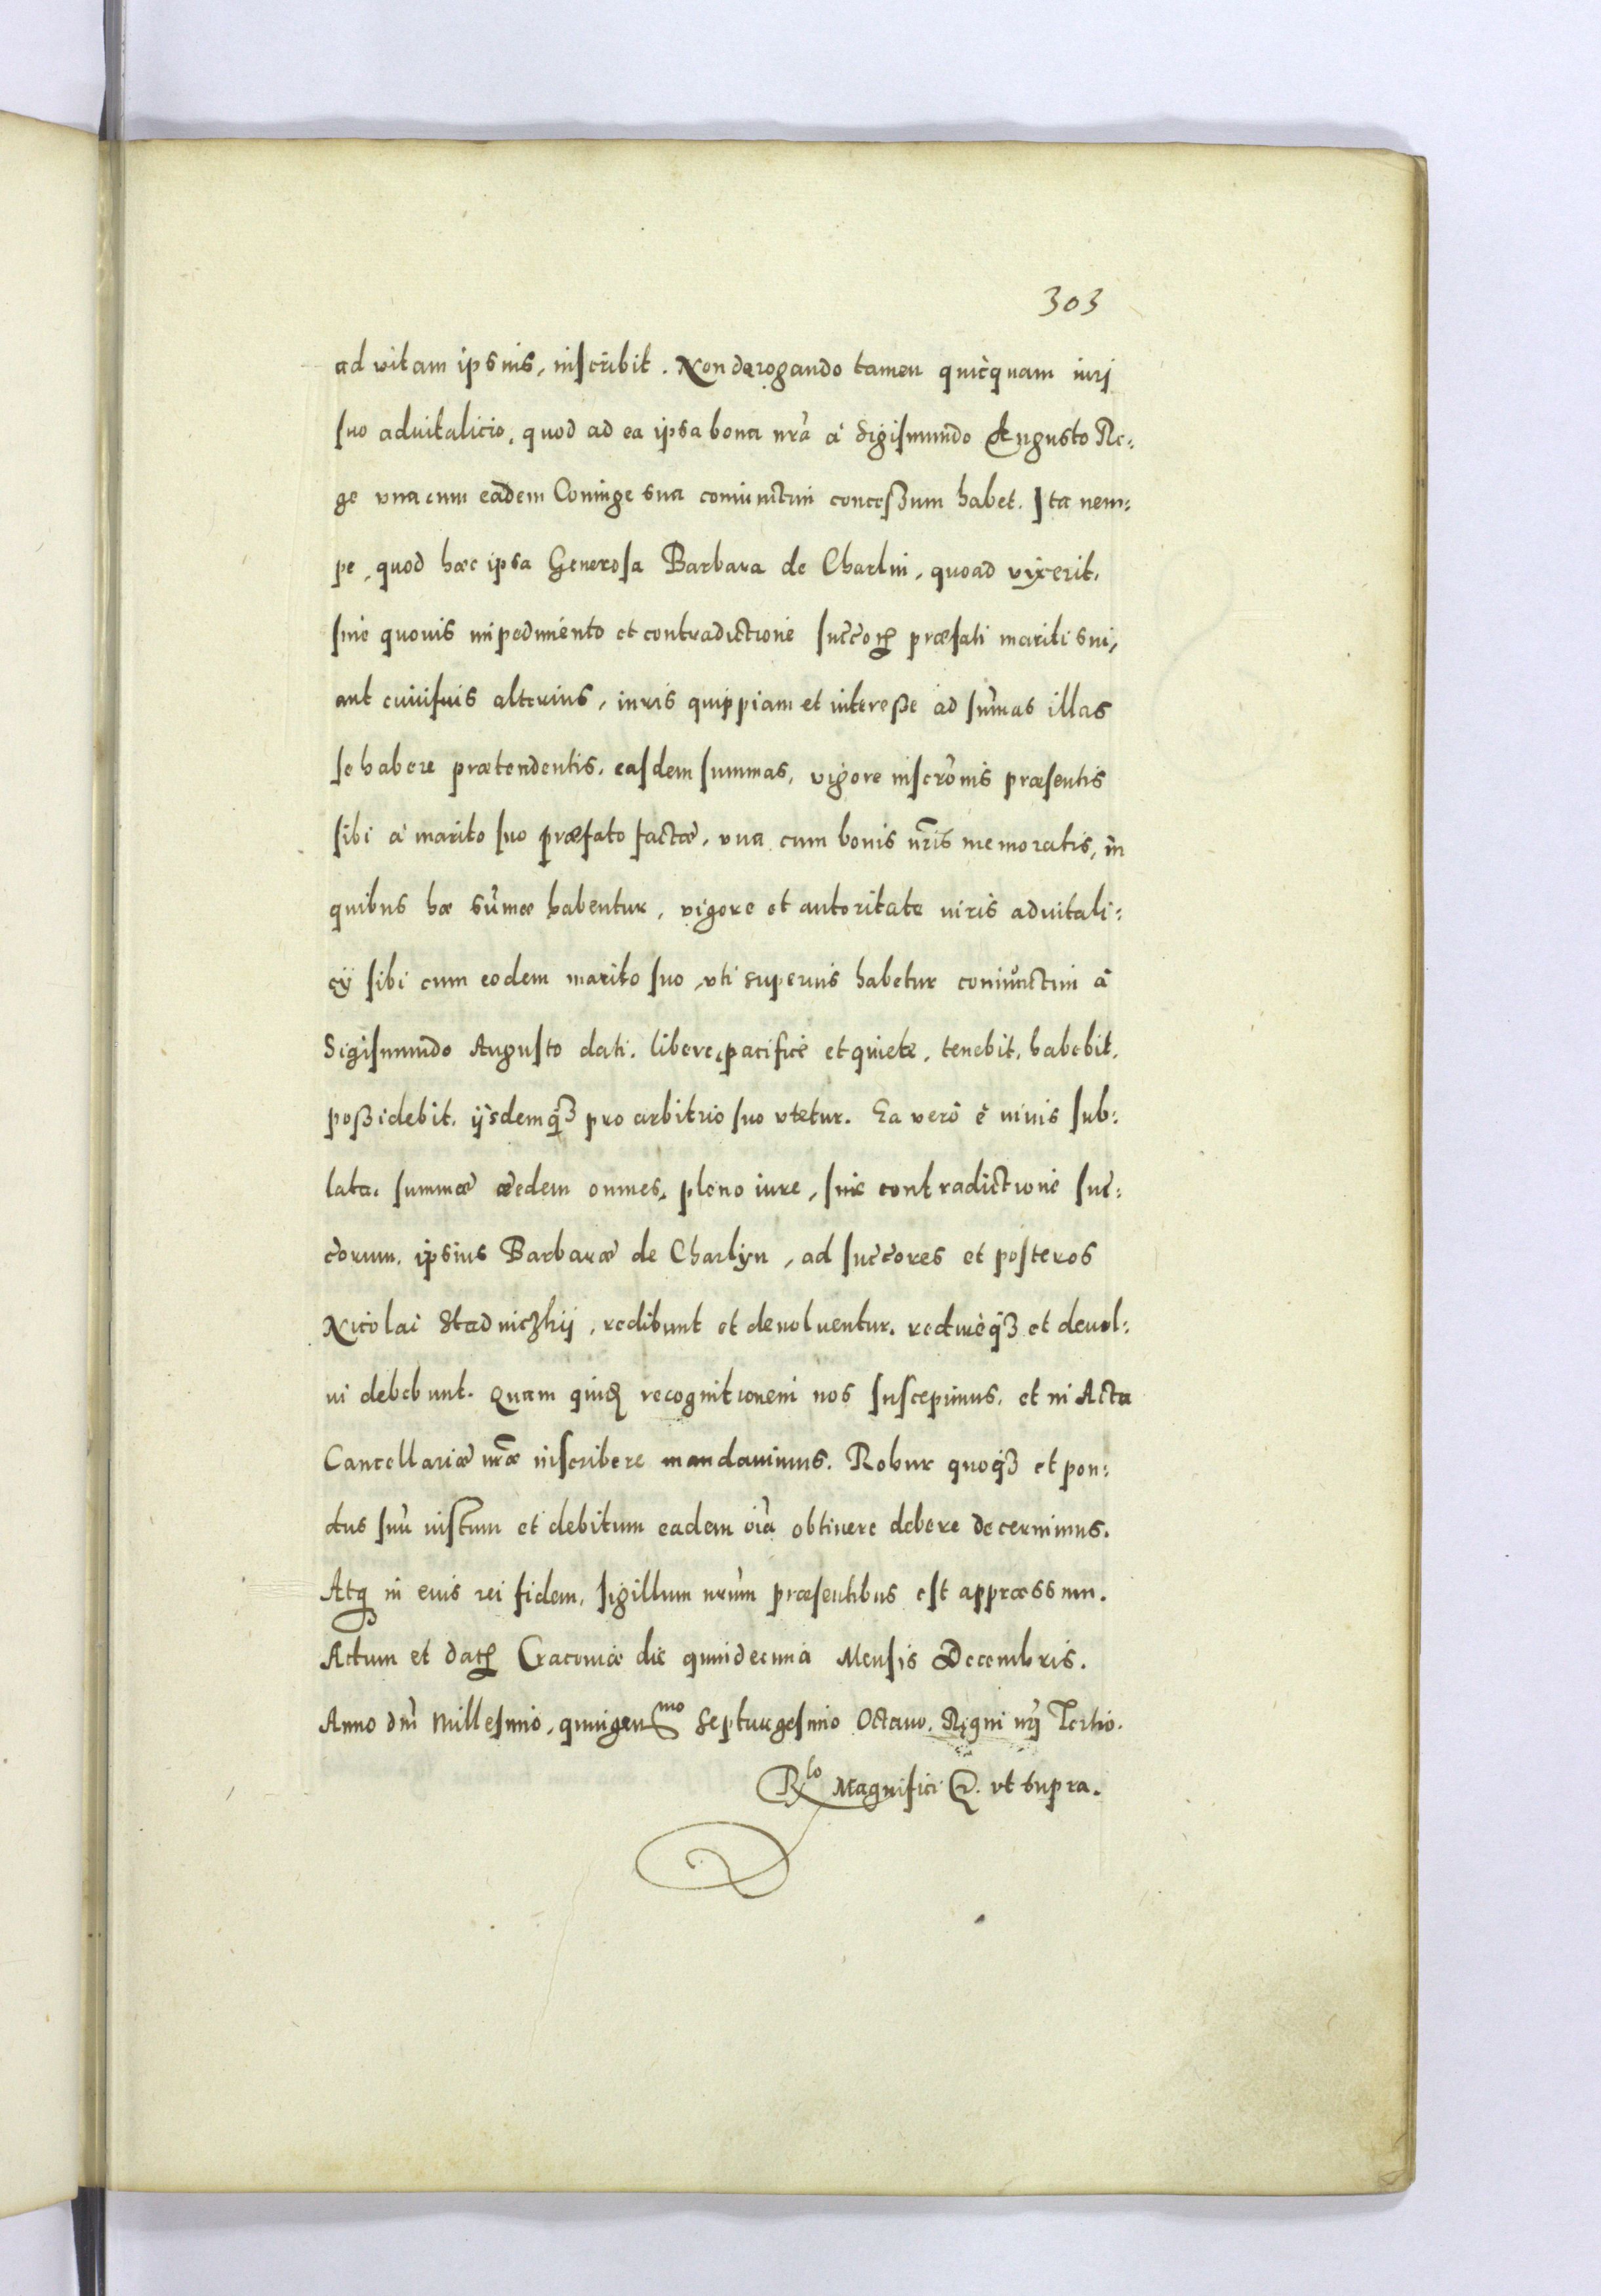 303
ad vitam ipsius, inscribit. Non derogando tamen quicquam iuri
suo advitalicio, quod ad ea ipsa bona nr̃a à Sigismundo Augusto Re:
ge vna cum eadem Coniuge sua coniunctim concessum habet. Ita nem:
pe, quod hæc ipsa Generosa Barbara de Charlin, quoad vixerit,
sine quouis impedimento et contradictione succ̃oꝝ præfati mariti sui,
aut cuiusuis alterius, iuris quippiam et interesse ad sum̃as illas
se habere prætendentis, easdem summas, vigore inscr̃onis præsentis
sibi à marito suo præfato factæ, vna cum bonis nr̃is memoratis, in
quibus hæ sum̃æ habentur, vigore et autoritate iuris advitali:
cÿ sibi cum eodem marito suo, vti superius habetur coniunctim à
Sigismundo Augusto dati, libere, pacifice et quiete, tenebit, habebit,
possidebit, ijsdemqꝫ pro arbitrio suo vtetur. Ea verò è viuis sub:
lata, summæ eædem omnes, pleno iure, sine contradictione suc̃:
c̃orum, ipsius Barbaræ de Charlyn, ad succ̃ores et posteros
Nicolai Stadniczkij, redibunt et deuoluentur, redireqꝫ et deuol:
ui debebunt. Quam quidẽ recognitionem nos suscepimus, et in Acta
Cancellariæ nr̃æ inscribere mandauimus. Robur quoqꝫ et pon:
dus suũ iustum et debitum eadem oĩa obtinere debere decernimus.
Atqꝫ in euis rei fidem, sigillum nr̃um præsentibus est appræssum.
Actum et datꝝ Cracouiæ die quindecima Mensis Decembris.
Anno dn̄i Millesimo, quingenᵐᵒ Septuagesimo Octauo, Regni nr̃i Tertio.
Rˡᵒ Magnifici &. vt supra.